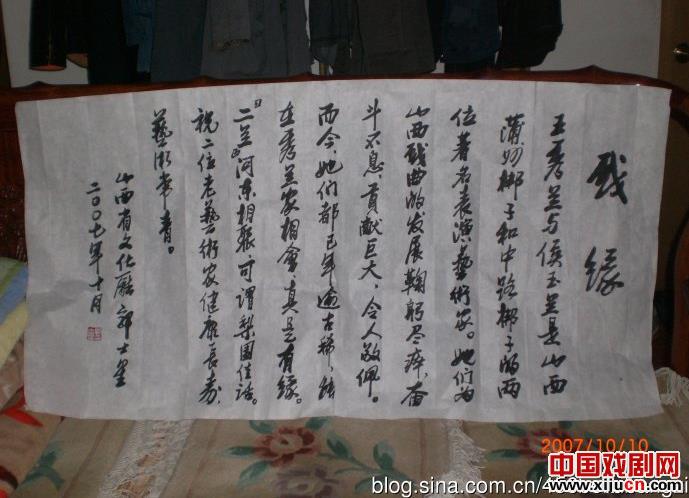 戏缘
王秀兰与侯玉兰是山西
蒲州梆子和中路梆子的两
位著名表演艺術家。她们为
山西戏曲的发展鞠躬尽瘁,奋
斗不息,贡献巨大,令人敬佩。
而今,她们都已年逾古稀,能
在秀兰家相會,真是有缘。
"二兰"河东相聚,可谓梨园佳话。
祝二位老藝術家健康長寿,
藝術常青。
山西省文化廳 郭士星
二〇〇七年十月
2007/10/10
中国戏剧网
www.xijucn.com
blog.sina.com.cn/4